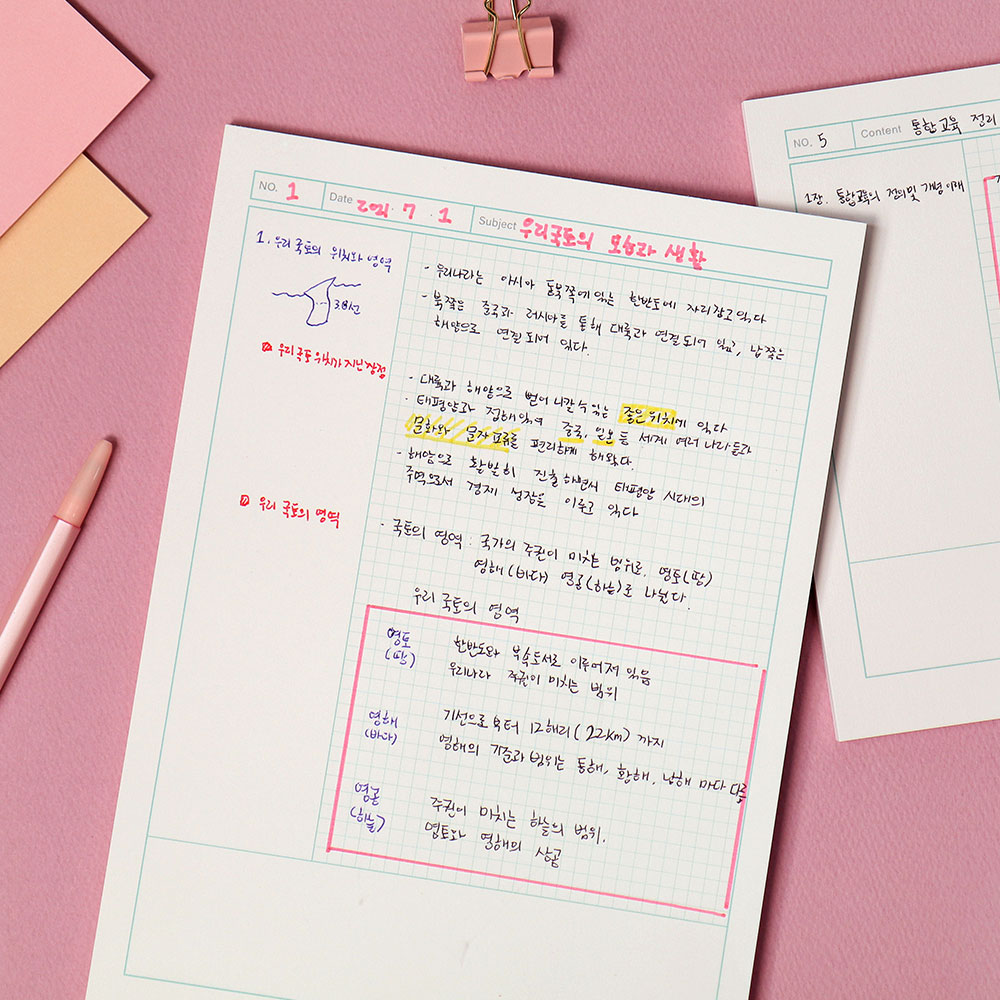 NO. 1 Date 2021. 7. 1 Subject 우리국토의 모습과 생활
1. 우리국토의 위치와 영역
38선
우리국토 위치가 지닌 장점
우리 국토의 영역
· 우리나라는 아시아 동북쪽에 있는 한반도에 자리잡고있다
· 북쪽은 중국과 러시아를 통해 대륙과 연결되어 있고, 남쪽은
해양으로 연결되어 있다.
· 대륙과 해양으로 뻗어 나갈수있는 좋은위치에 있다
· 태평양과 접해있어 중국, 일본 등 세계 여러 나라들과
문화와 물자 교류를 편리하게 해왔다.
· 해양으로 활발히 진출하면서 태평양 시대의
주역으로서 경제 성장을 이루고 있다
· 국토의 영역 : 국가의 주권이 미치는 범위로, 영토(땅)
영해(바다) 영공(하늘)로 나뉜다.
우리 국토의 영역
영토
(땅)
한반도와 부속도서로 이루어져 있음
우리나라 주권이 미치는 범위
영해
(바다)
기선으로 부터 12해리(22km) 까지
영해의 기준과 범위는 동해, 황해, 남해 마다 다름
영공
(하늘)
주권이 미치는 하늘의 범위.
영토와 영해의 상공
NO. 5 Content 통합교육
1장. 통합교육의